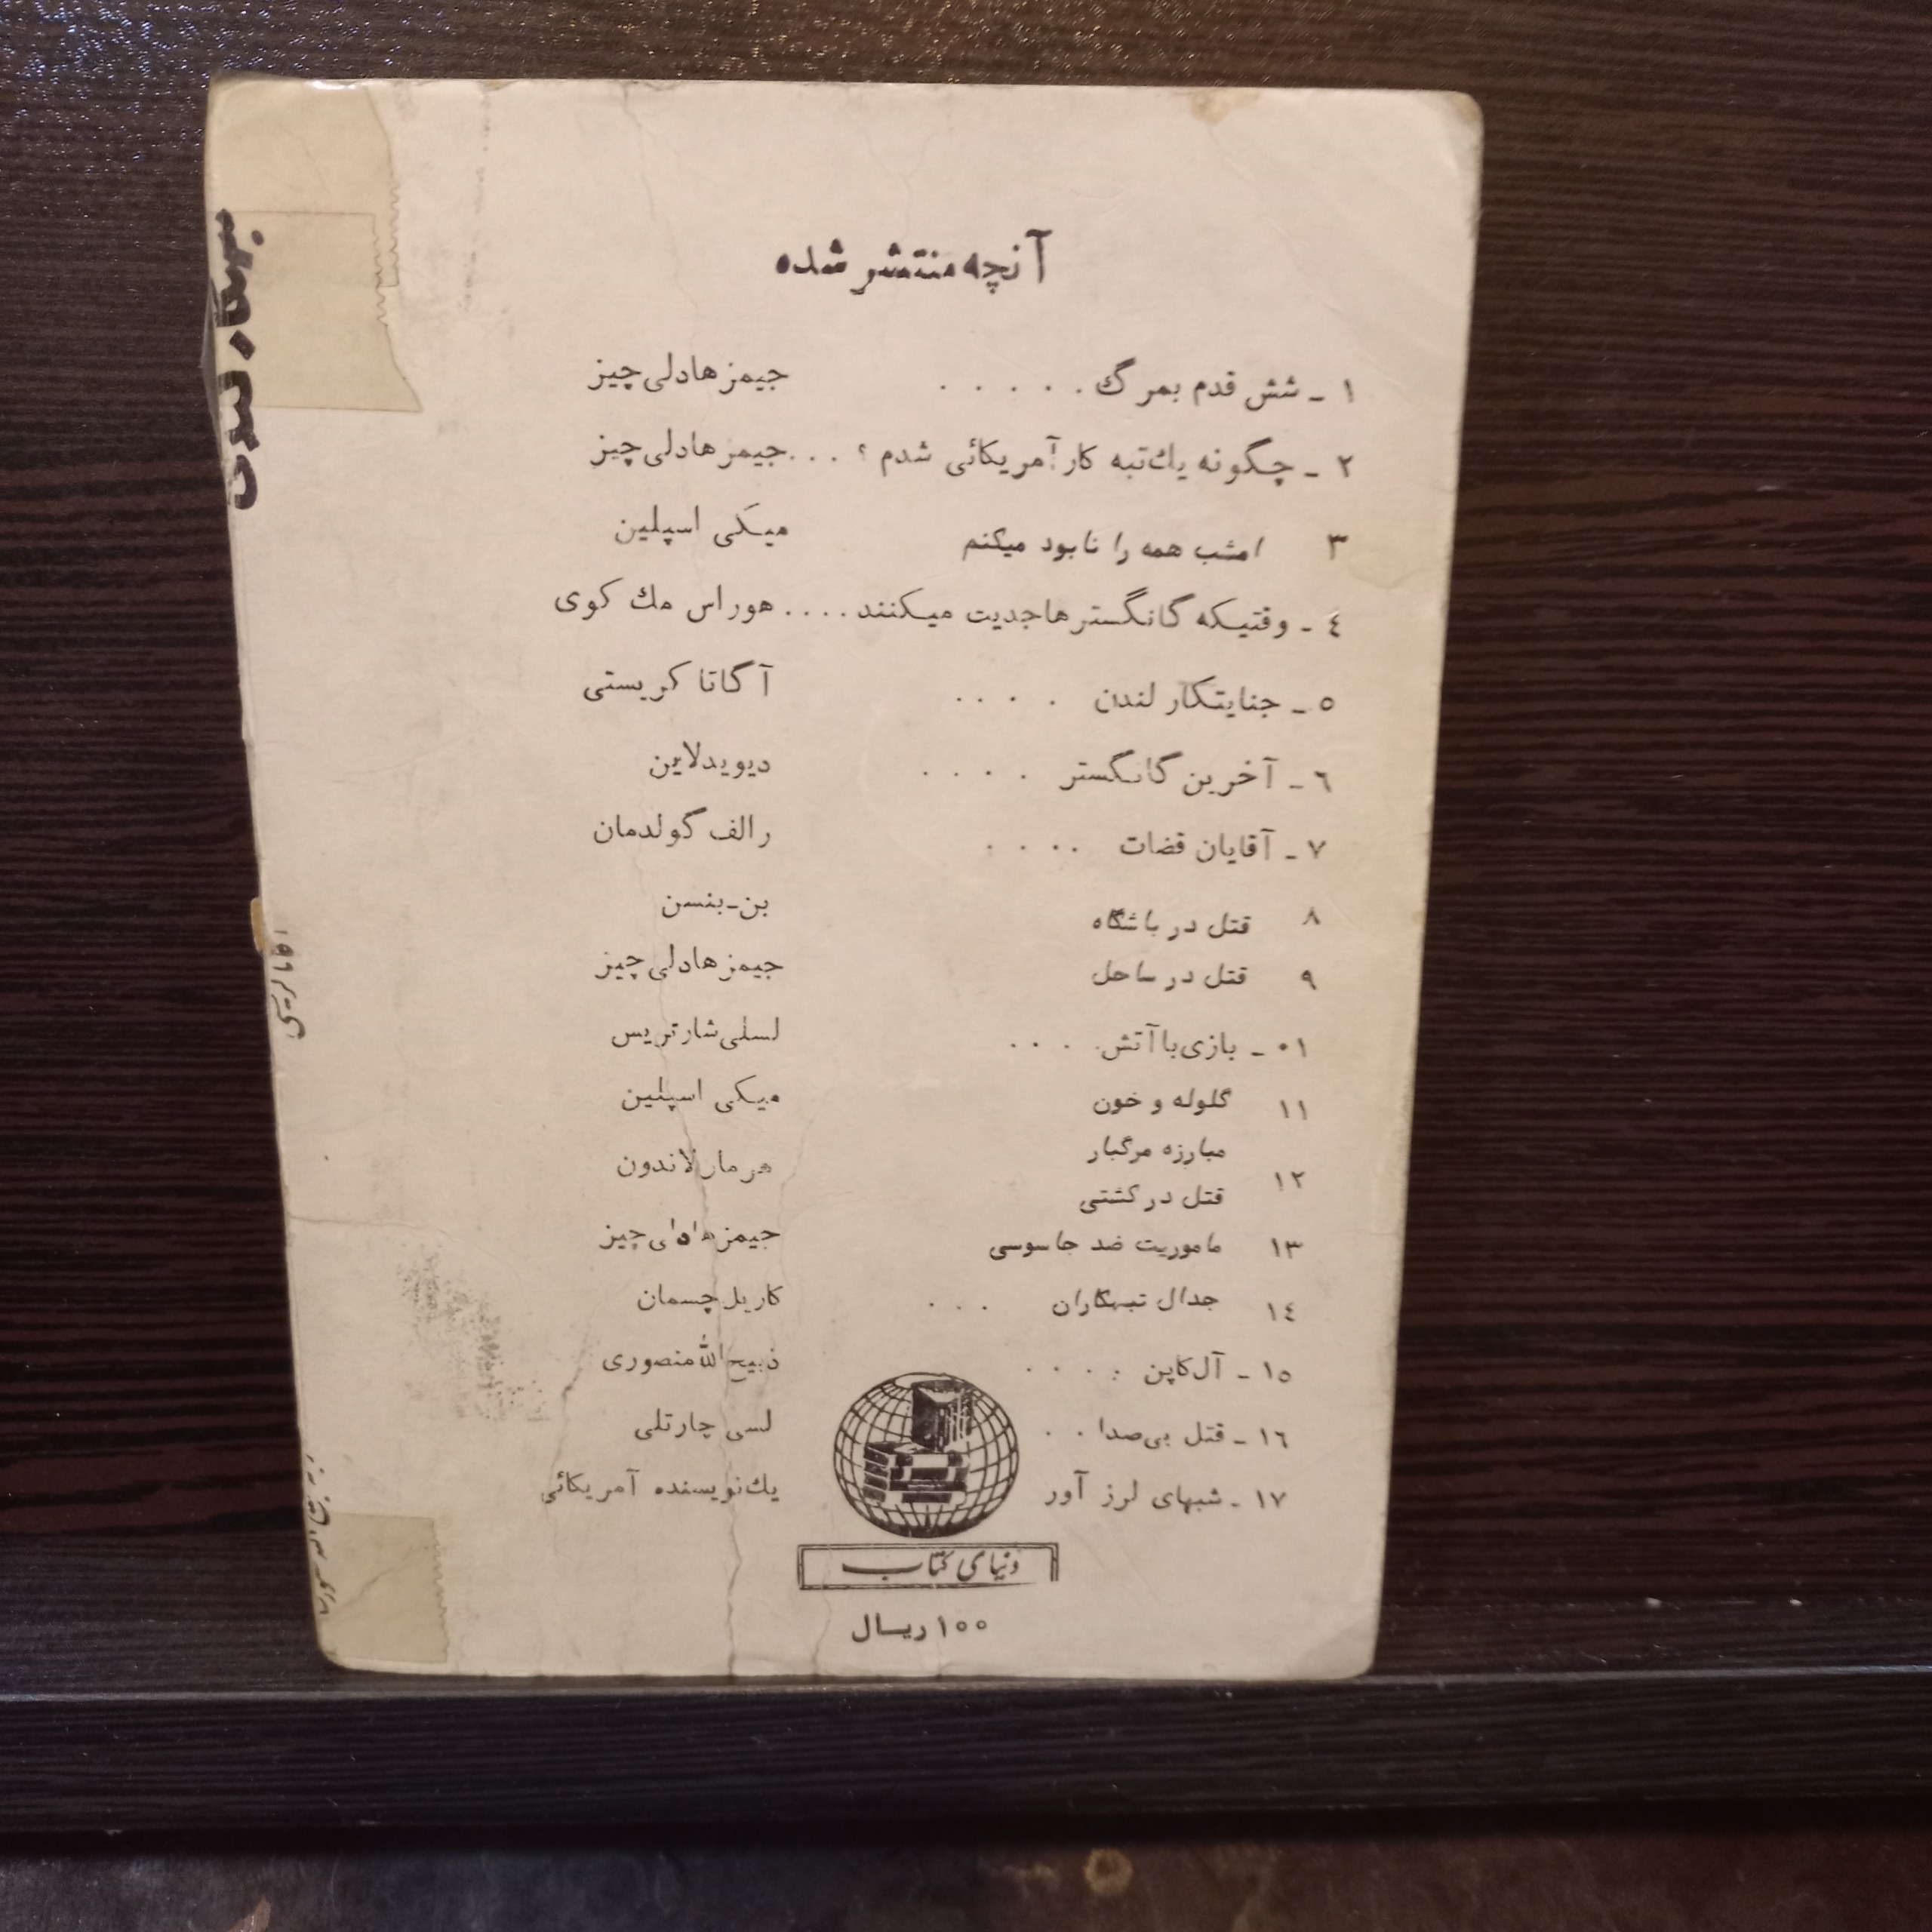 آنچه منتشر شده
۱ - شش قدم بمرگ . . . . . جیمز هادلی چیز
۲ - چگونه یك تبه كار آمریكائی شدم ؟ . . . جیمز هادلی چیز
۳ امشب همه را نابود میکنم میکی اسپلین
٤ - وقتیکه گانگسترها جدیت میکنند . . . . هوراس مك كوی
٥ - جنایتکار لندن . . . . آگاتا کریستی
٦ - آخرین گانگستر . . . . دیویدلاین
۷ - آقایان قضات . . . . رالف گولدمان
۸ قتل در باشگاه بن-بنسن
۹ قتل در ساحل جیمز هادلی چیز
۰۱ - بازی با آتش . . . . لسلی شارتریس
۱۱ گلوله و خون میکی اسپلین
مبارزه مرگبار
۱۲ هرمارلاندون
قتل در کشتی
۱۳ ماموریت ضد جاسوسی جیمز هادلی چیز
۱٤ جدال تبهکاران . . . کاریل چسمان
۱٥ - آل کاپن . . . . ذبیح الله منصوری
۱٦ - قتل بی صدا . . لسی چارتلی
۱۷ - شبهای لرز آور یك نویسنده آمریکائی
دنیای کتاب
۱۰۰ ریسال